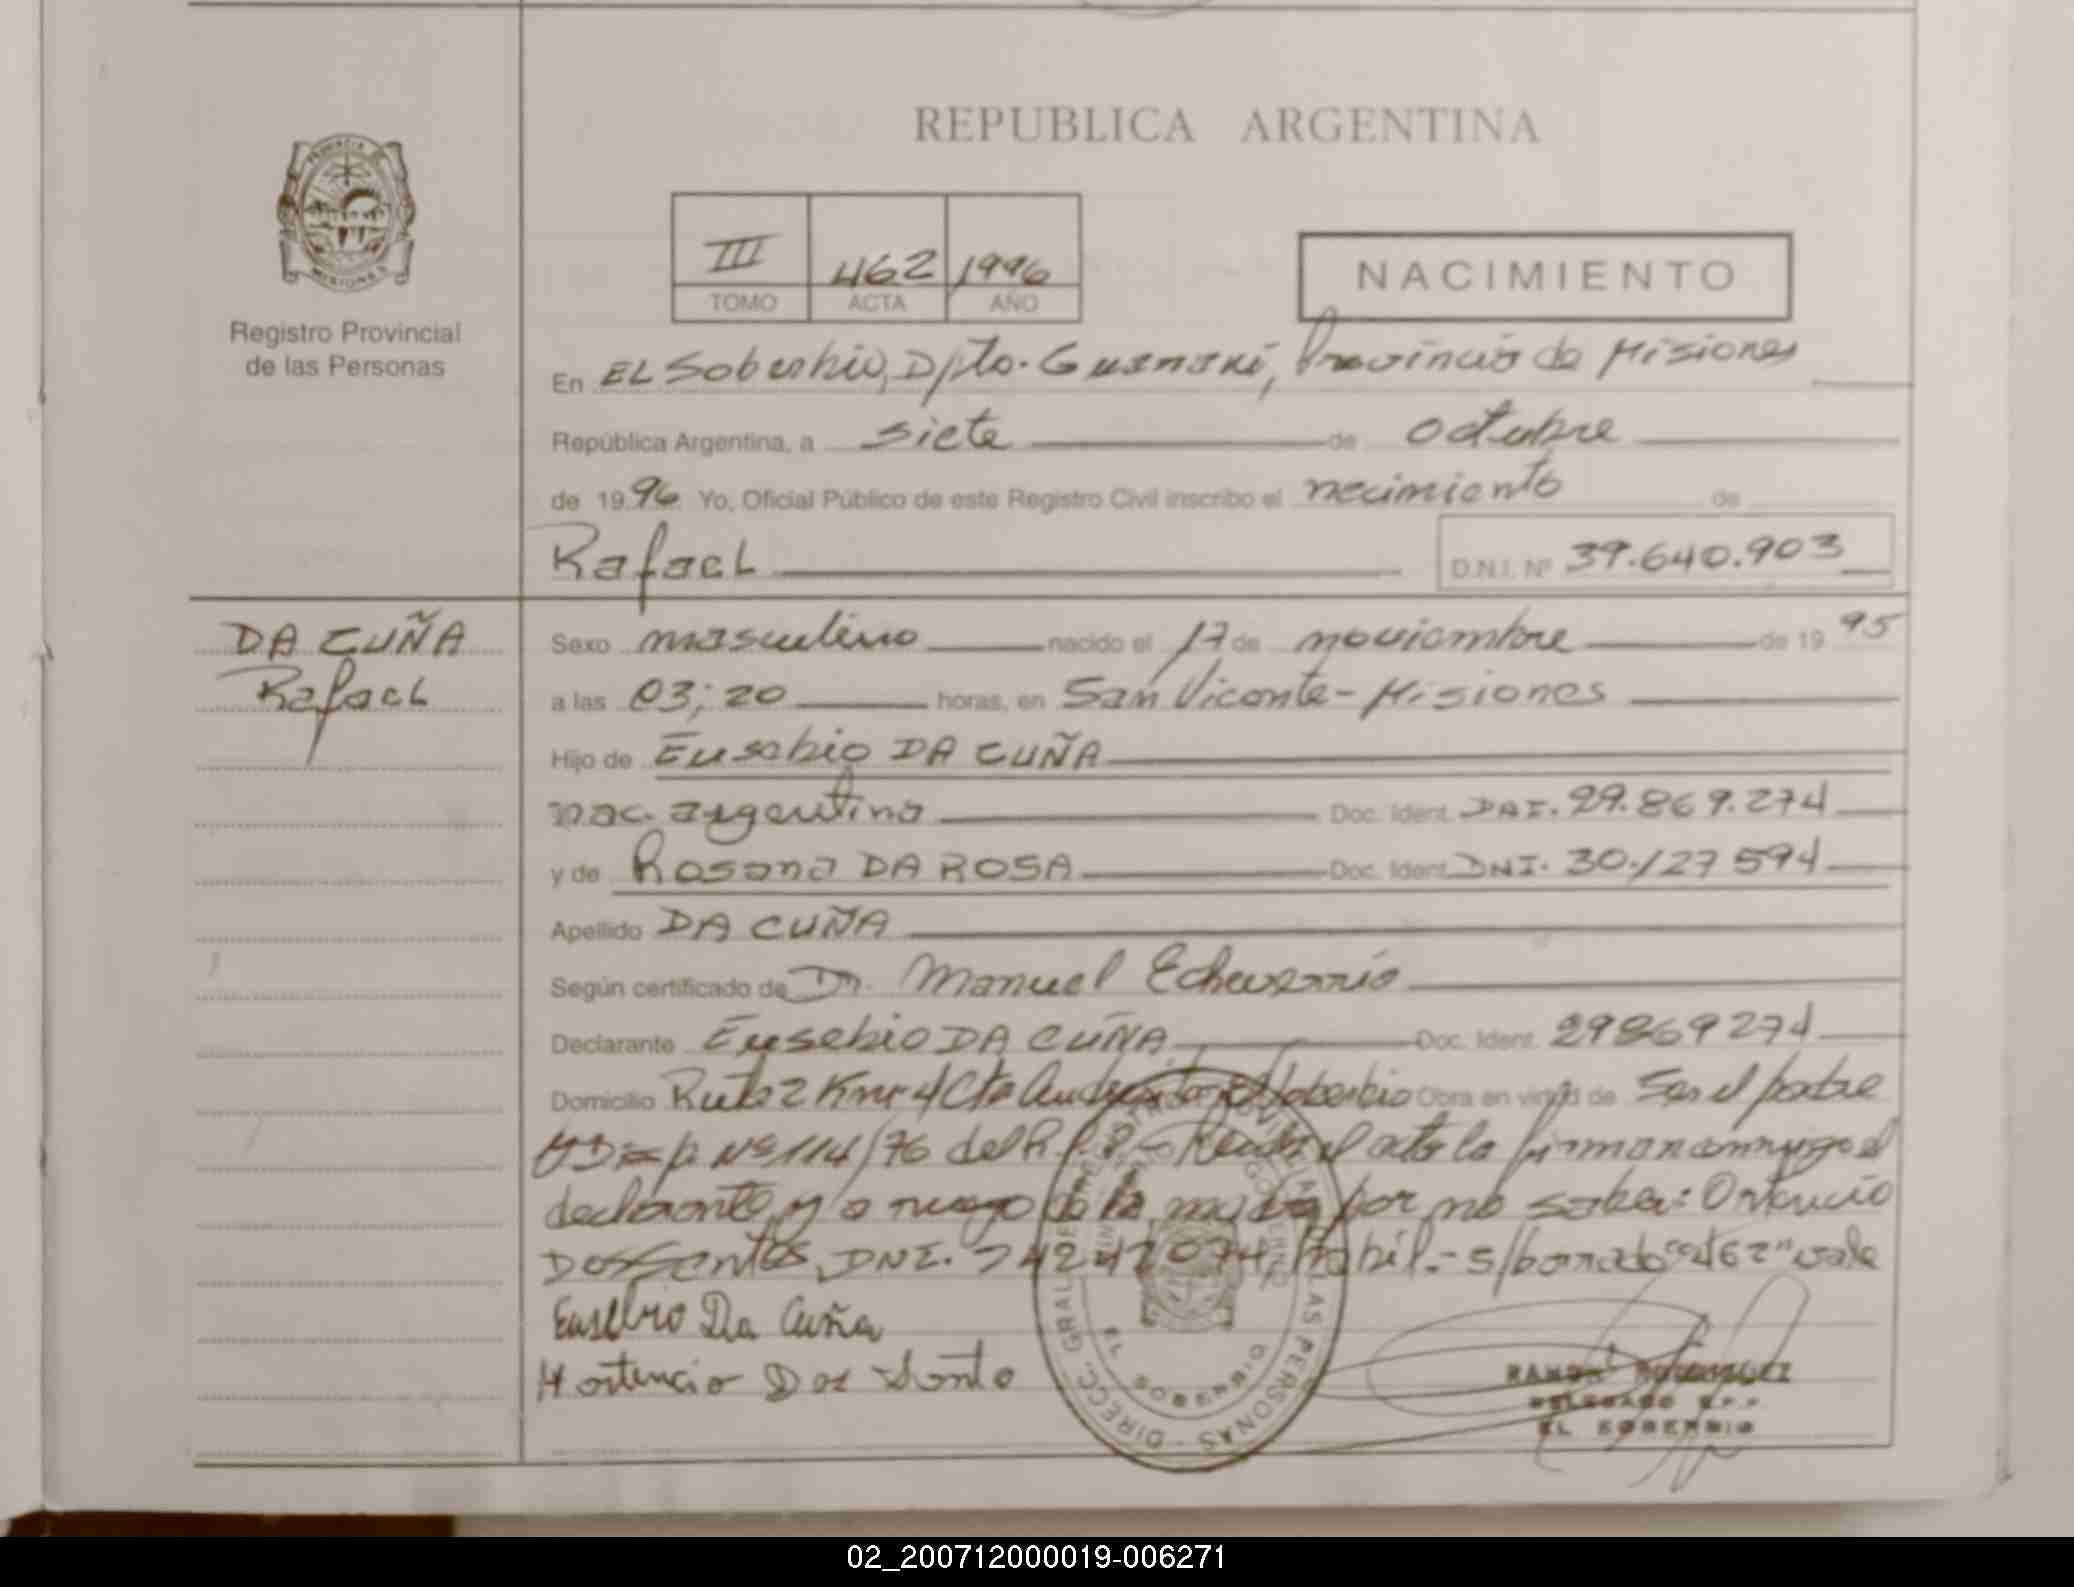 REPUBLICA ARGENTINA
PROVINCIA DE MISIONES
Registro Provincial
de las Personas
III 462 1996
TOMO ACTA AÑO
NACIMIENTO
En EL Soberbio, Dpto. Guaraní, Provincia de Misiones
República Argentina, a siete de octubre
de 1996 Yo, Oficial Público de este Registro Civil inscribo el nacimiento de
Rafael D.N.I. Nº 39.640.903
DA CUÑA
Rafael
Sexo masculino nacido el 17 de noviembre de 19 95
a las 03;20 horas, en San Vicente - Misiones
Hijo de Eusebio DA CUÑA
nac. argentina Doc. Ident. DNI. 29.869.274
y de Rosana DA ROSA Doc. Ident. DNI. 30.127594
Apellido DA CUÑA
Según certificado de Dr. Manuel Echeverría
Declarante Eusebio DA CUÑA Doc. Ident. 29869274
Domicilio Ruta 2 Km 4 El Soberbio Obra en virtud de Ser el padre
Disp. Nº 114/76 del R.P.P. - Leida el acta la firman conmigo el
declarante y a ruego de la madre por no saber: Ortencio
Dos Santos, DNI. 24242074, habil.- s/borrado "462" vale
Eusebio Da Cuña
Hortencio Dos Santo
DIRECC. GRAL. DEL REGISTRO PROVINCIAL DE LAS PERSONAS
EL SOBERBIO
RAMON RODRIGUEZ
DELEGADO R.P.P.
EL SOBERBIO
02_200712000019-006271